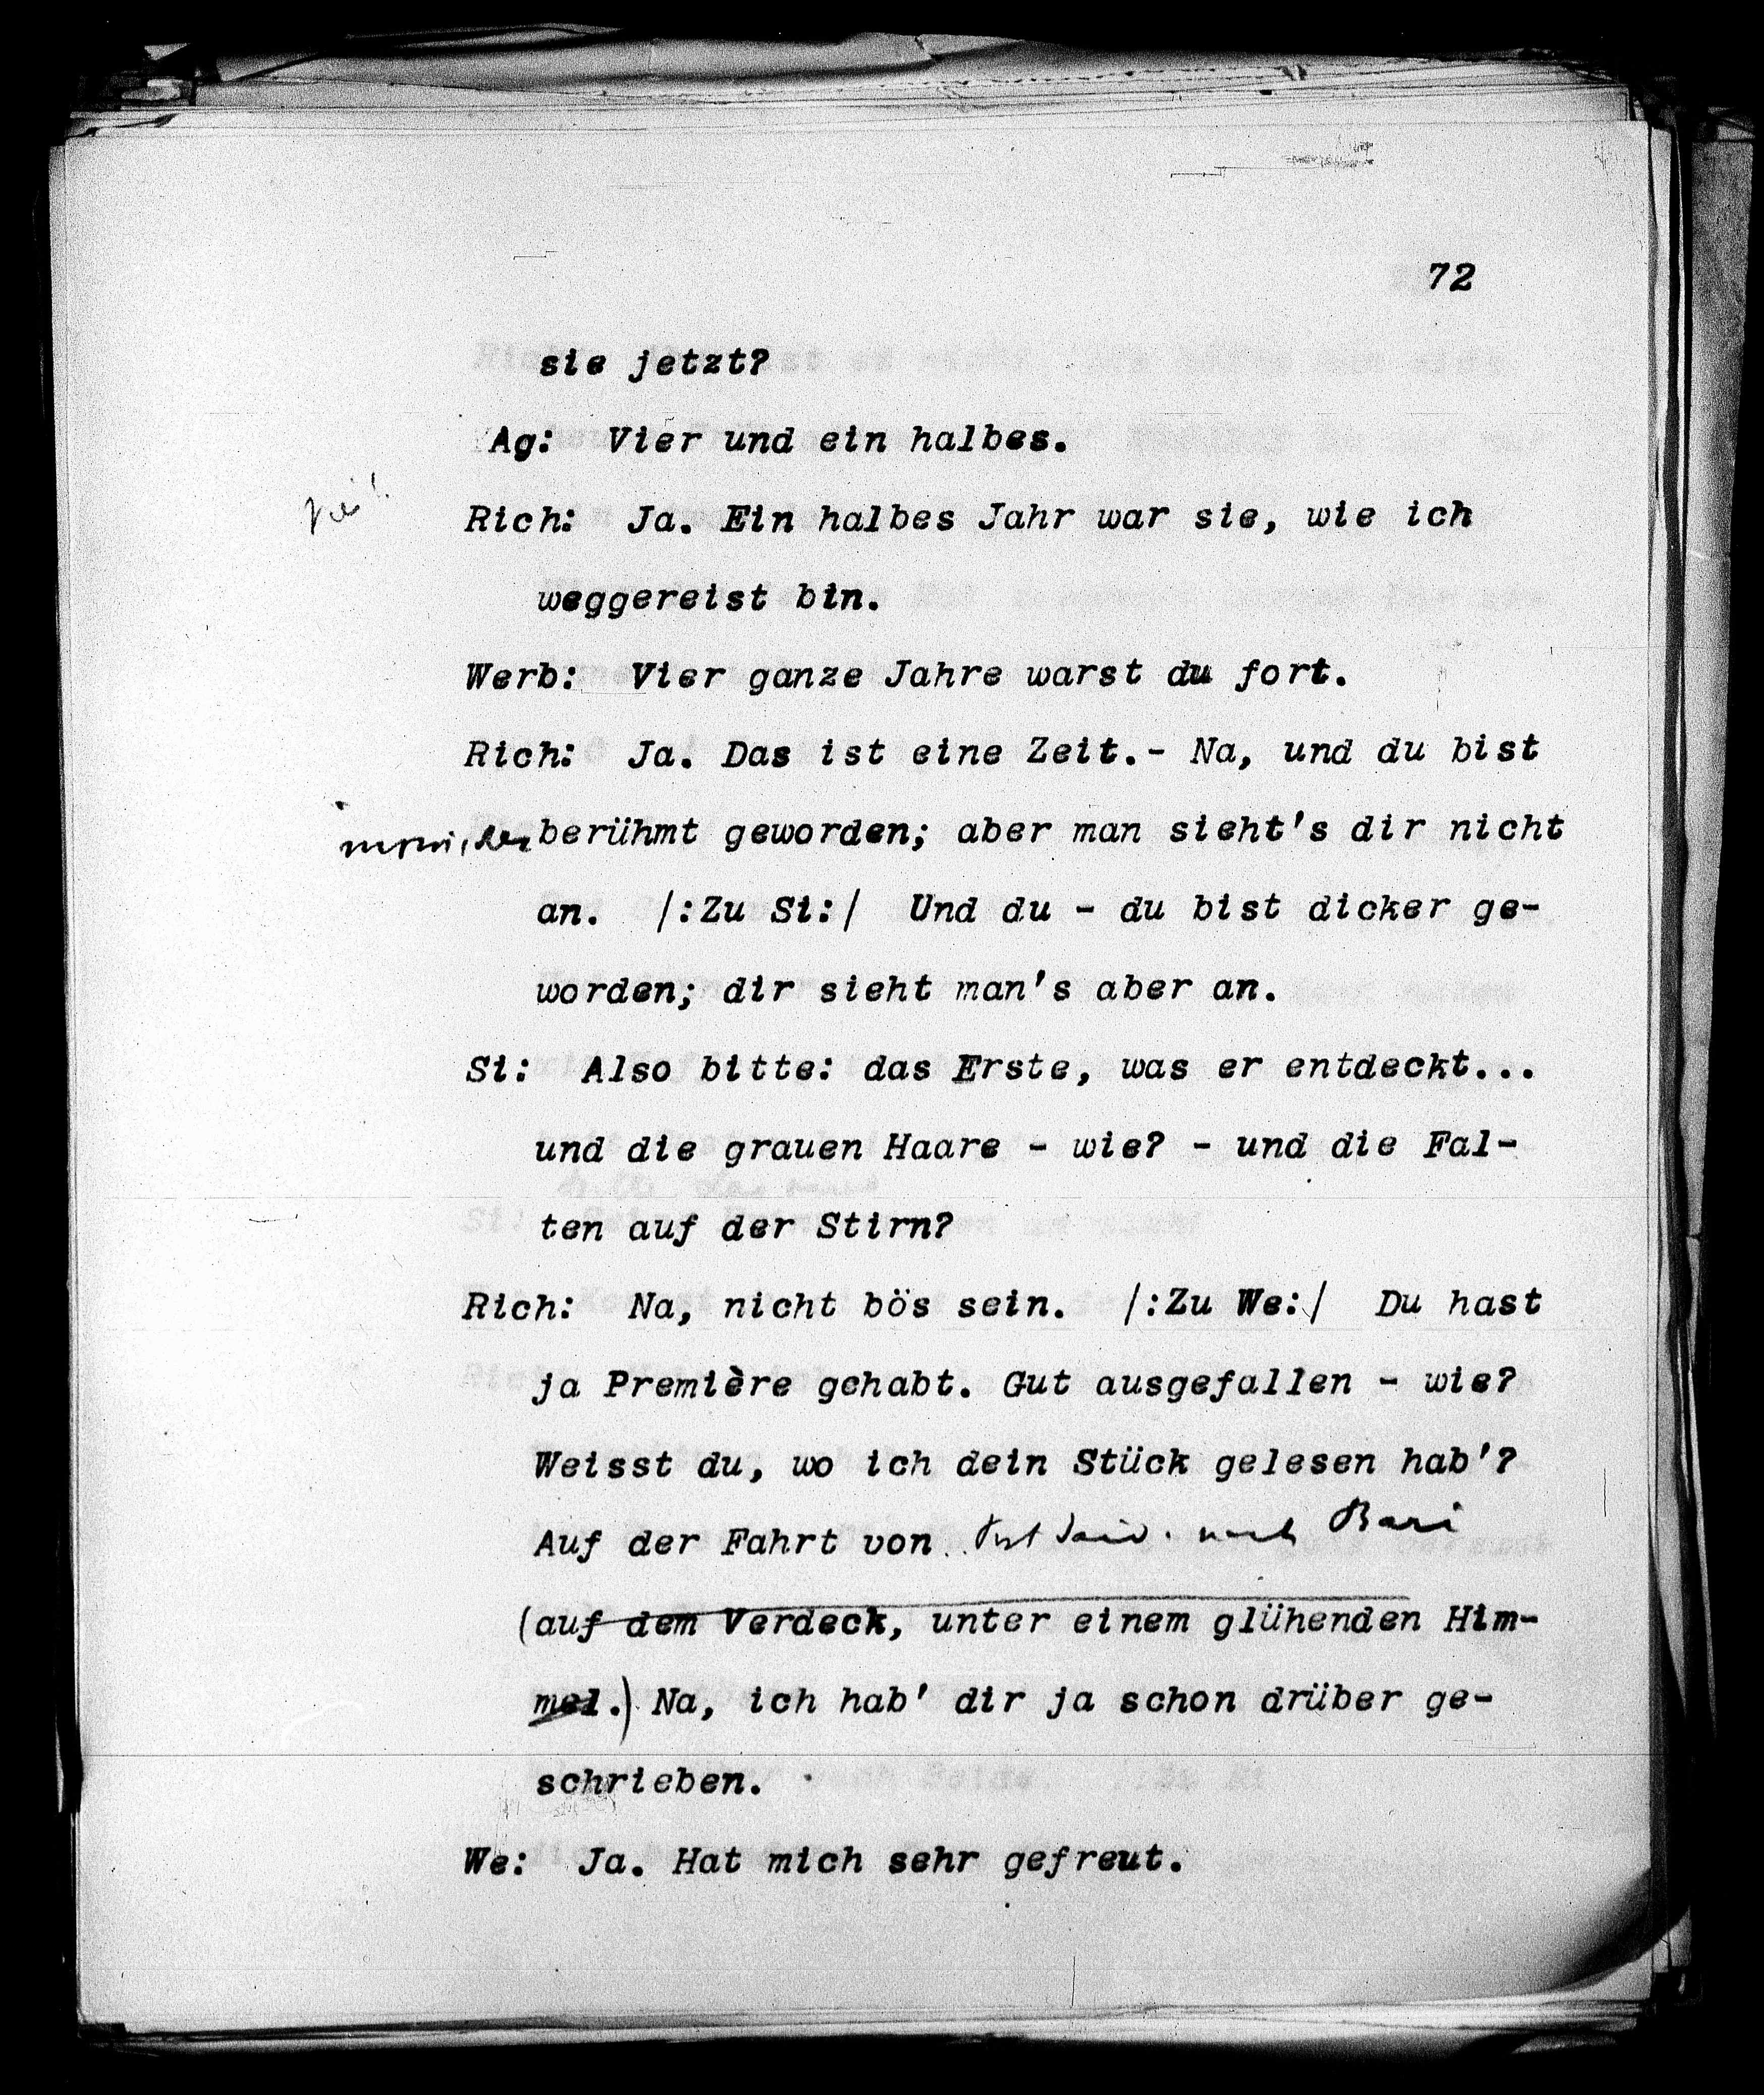 72
sie jetzt?
Ag: Vier und ein halbes.
Rich: Ja. Ein halbes Jahr war sie, wie ich
weggereist bin.
Werb: Vier ganze Jahre warst du fort.
Rich: Ja. Das ist eine Zeit.- Na, und du bist
berühmt geworden; aber man sieht's dir nicht
an. /:Zu Si:/ Und du - du bist dicker ge-
worden; dir sieht man's aber an.
Si: Also bitte: das Erste, was er entdeckt...
und die grauen Haare - wie? - und die Fal-
ten auf der Stirn?
Rich: Na, nicht bös sein. /:Zu We:/ Du hast
ja Première gehabt. Gut ausgefallen - wie?
Weisst du, wo ich dein Stück gelesen hab'?
Auf der Fahrt von Port Said nach Bari
(auf dem Verdeck, unter einem glühenden Him-
mel.) Na, ich hab' dir ja schon drüber ge-
schrieben.
We: Ja. Hat mich sehr gefreut.